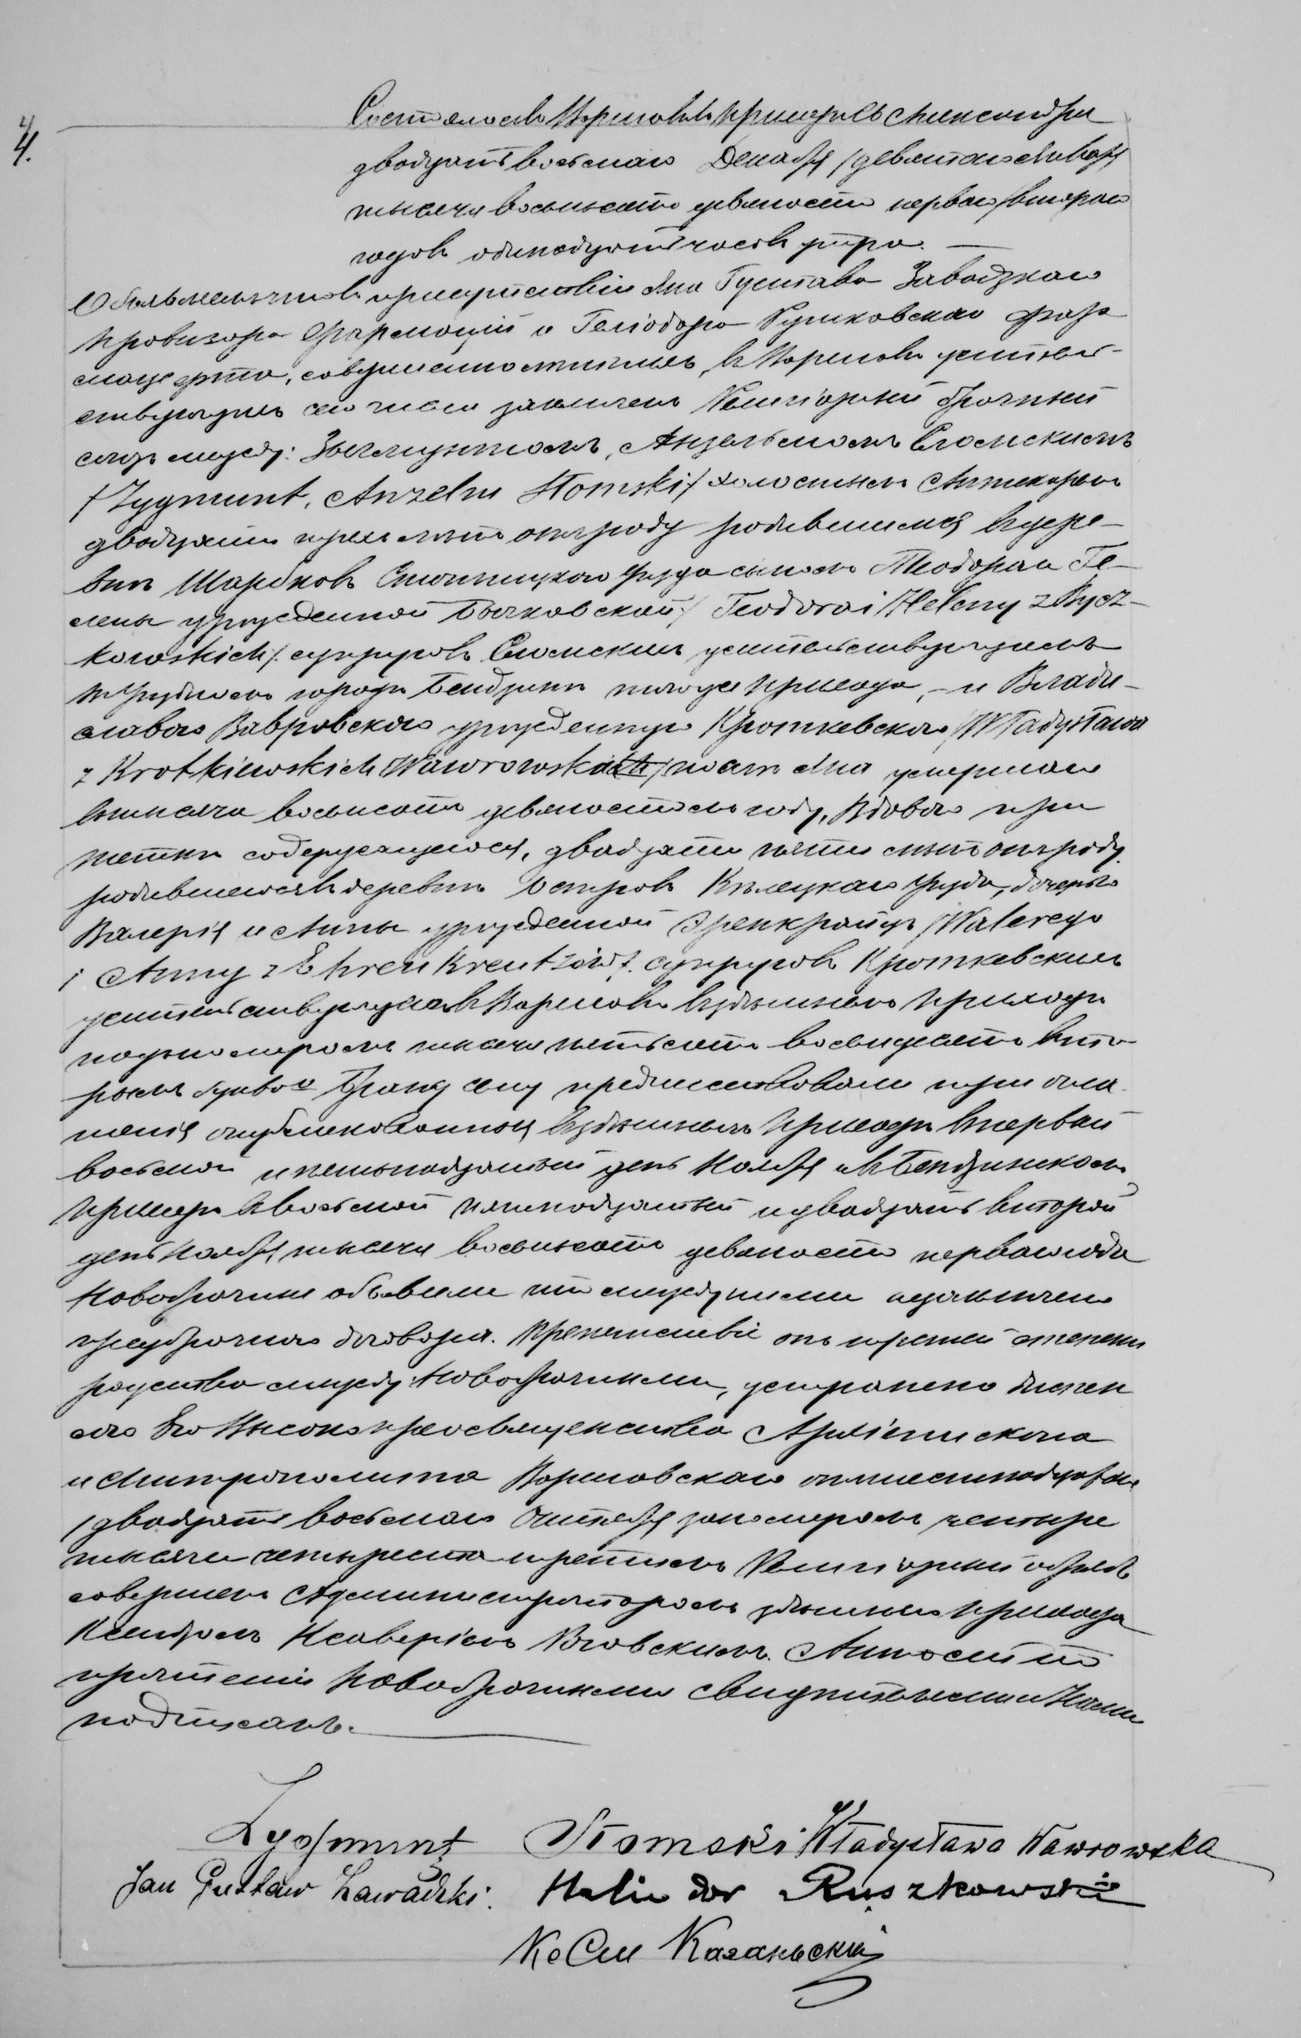 4.
Состоялось въ Варшавѣ въ приходѣ св. Александра
двадцать восьмаго Декабря /девятаго Января/
тысяча восемьсотъ девяносто перваго /втораго
годовъ въ одинадцать часовъ утра. —
Объявляемъ что въ присутствіи Яна Густава Завадзкаго
провизора фармаціи и Геліодора Рушковскаго фар-
мацевта, совершеннолѣтнихъ, въ Варшавѣ жительст-
вующихъ сего числа заключенъ Религіозный брачный
союзъ между: Зыгмунтомъ, Анзельмомъ Сломскимъ
/Zygmunt, Anzelm Słomski/ холостымъ Аптекаремъ
двадцати трехъ лѣтъ отъ роду родившимся въ дерев-
нѣ Шарбковъ Стопницкаго уѣзда сыномъ Теодора и Ге-
лены урожденной Бычковской /Teodora i Heleny z Bycz-
kowskich/ супруговъ Сломскихъ жительствующимъ
въ городѣ Бендзинѣ того же прихода, — и Влади-
славою Вавровскою урожденною Кроткевскою /Władysława
z Krotkiewskich Wawrowska/ по Янѣ умершемъ
въ тысяча восемьсотъ девяностомъ году, вдовою при
матери содержащеюся, двадцати пяти лѣтъ отъ роду
родившеюся въ деревнѣ Островъ Кѣлецкаго уѣзда, дочерью
Валерія и Анны урожденной Эренкрейцъ /Walerego
i Anny z Ehrenkreutzów/ супруговъ Кроткевскихъ
жительствующею въ Варшавѣ въ здѣшнемъ приходѣ
подъ номеромъ тысяча пятьсотъ восемьдесятъ вто-
рымъ буквою Браку сему предшествовали три огла-
шенія опубликованныя въ здѣшнемъ приходѣ въ первый
восьмой и пятнадцатый день Ноября и въ Бендзинскомъ
приходѣ въ восьмой пятнадцатый и двадцать второй
день Ноября тысяча восемьсотъ девяносто перваго года
Новобрачные объявили что между ними заключено
предбрачнаго договора. Препятствіе отъ третьей степени
родства между Новобрачными, устранено
Его Высокопреосвященства Архіепископа
и Митрополита Варшавскаго отъ шестнадцатаго
/двадцать восьмаго Октября за номеромъ четыре
тысячи четыреста третьимъ Религіозный обрядъ
совершенъ Администраторомъ здѣшняго прихода
Ксендзомъ Ксаверіемъ Актъ сей по
прочтеніи Новобрачными свидѣтелями и Нами
подписанъ.
Zygmunt Słomski Władysława Wawrowska
Jan Gustaw Zawadzki. Heliodor Ruszkowski
Кс